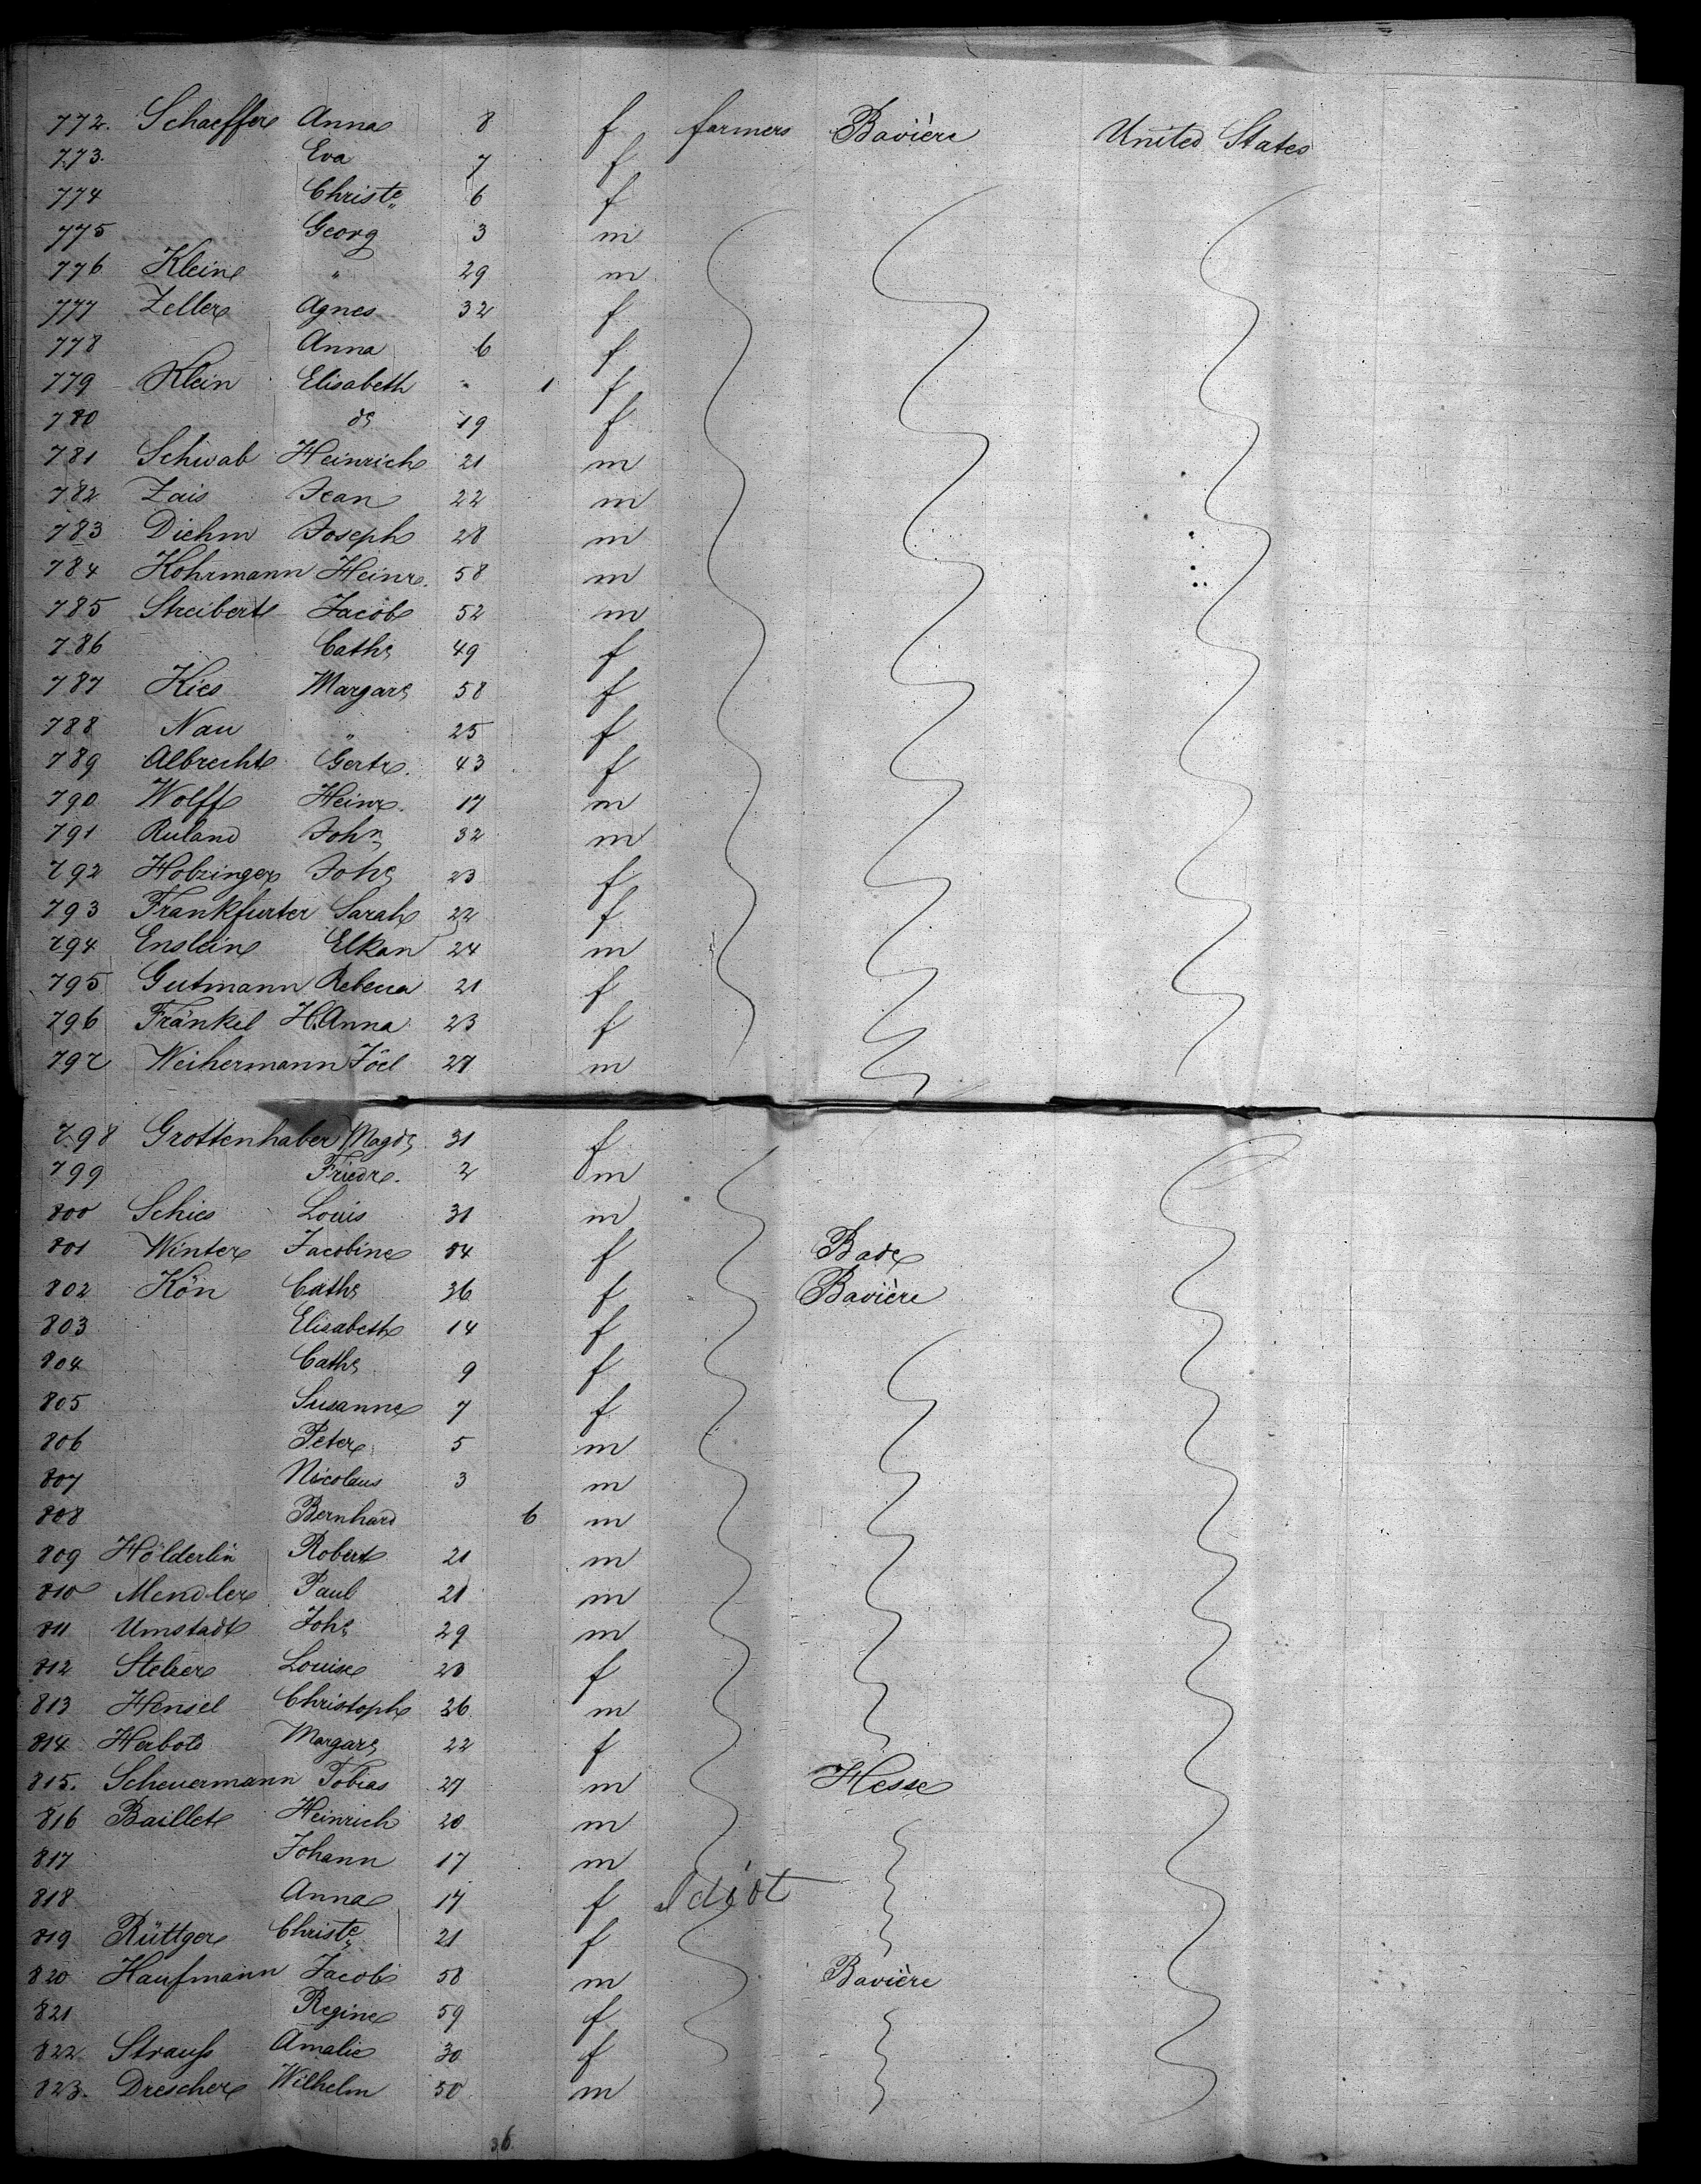 772. Schaeffer Anna 8 f farmers Bavière United States
773. Eva 7 f
774 Christe 6 f
775 Georg 3 m
776 Klein " 29 m
777 Zeller Agnes 32 f
778 Anna 6 f
779 Klein Elisabeth " 1 f
780 do 19 f
781 Schwab Heinrich 21 m
782 Zais Jean 22 m
783 Diehm Joseph 28 m
784 Kohrmann Heinr. 58 m
785 Streibert Jacob 52 m
786 Cath. 49 f
787 Kies Margar. 58 f
788 Nau " 25 f
789 Albrecht Gertr. 43 f
790 Wolff Heinr. 17 m
791 Ruland John 32 m
792 Holzinger Joh. 23 f
793 Frankfurter Sarah 22 f
794 Enslein Elkan 24 m
795 Gutmann Rebecca 21 f
796 Fränkel H.Anna 23 f
797 Weihermann Joël 27 m
798 Grottenhaber Magd. 31 f
799 Friedr. 2 m
800 Schies Louis 31 m
801 Winter Jacobine 54 f Bade
802 Kön Cath. 36 f Bavière
803 Elisabeth 14 f
804 Cath. 9 f
805 Susanne 7 f
806 Peter 5 m
807 Nicolaus 3 m
808 Bernhard 6 m
809 Hölderlin Robert 21 m
810 Mendler Paul 21 m
811 Umstadt Joh. 29 m
812 Louise f
813 Hensel Christoph 26 m
814 Herbold Margar. 22 f
815. Scheuermann Tobias 27 m Hesse
816 Baillet Heinrich 20 m
817 Johann 17 m
818 Anna 17 f Idiot
819 Rüttger Christe 21 f
820 Kaufmann Jacob 58 m Bavière
821 Regine 59 f
822 Strauss Amalie 30 f
823. Drescher Wilhelm 50 m
36.